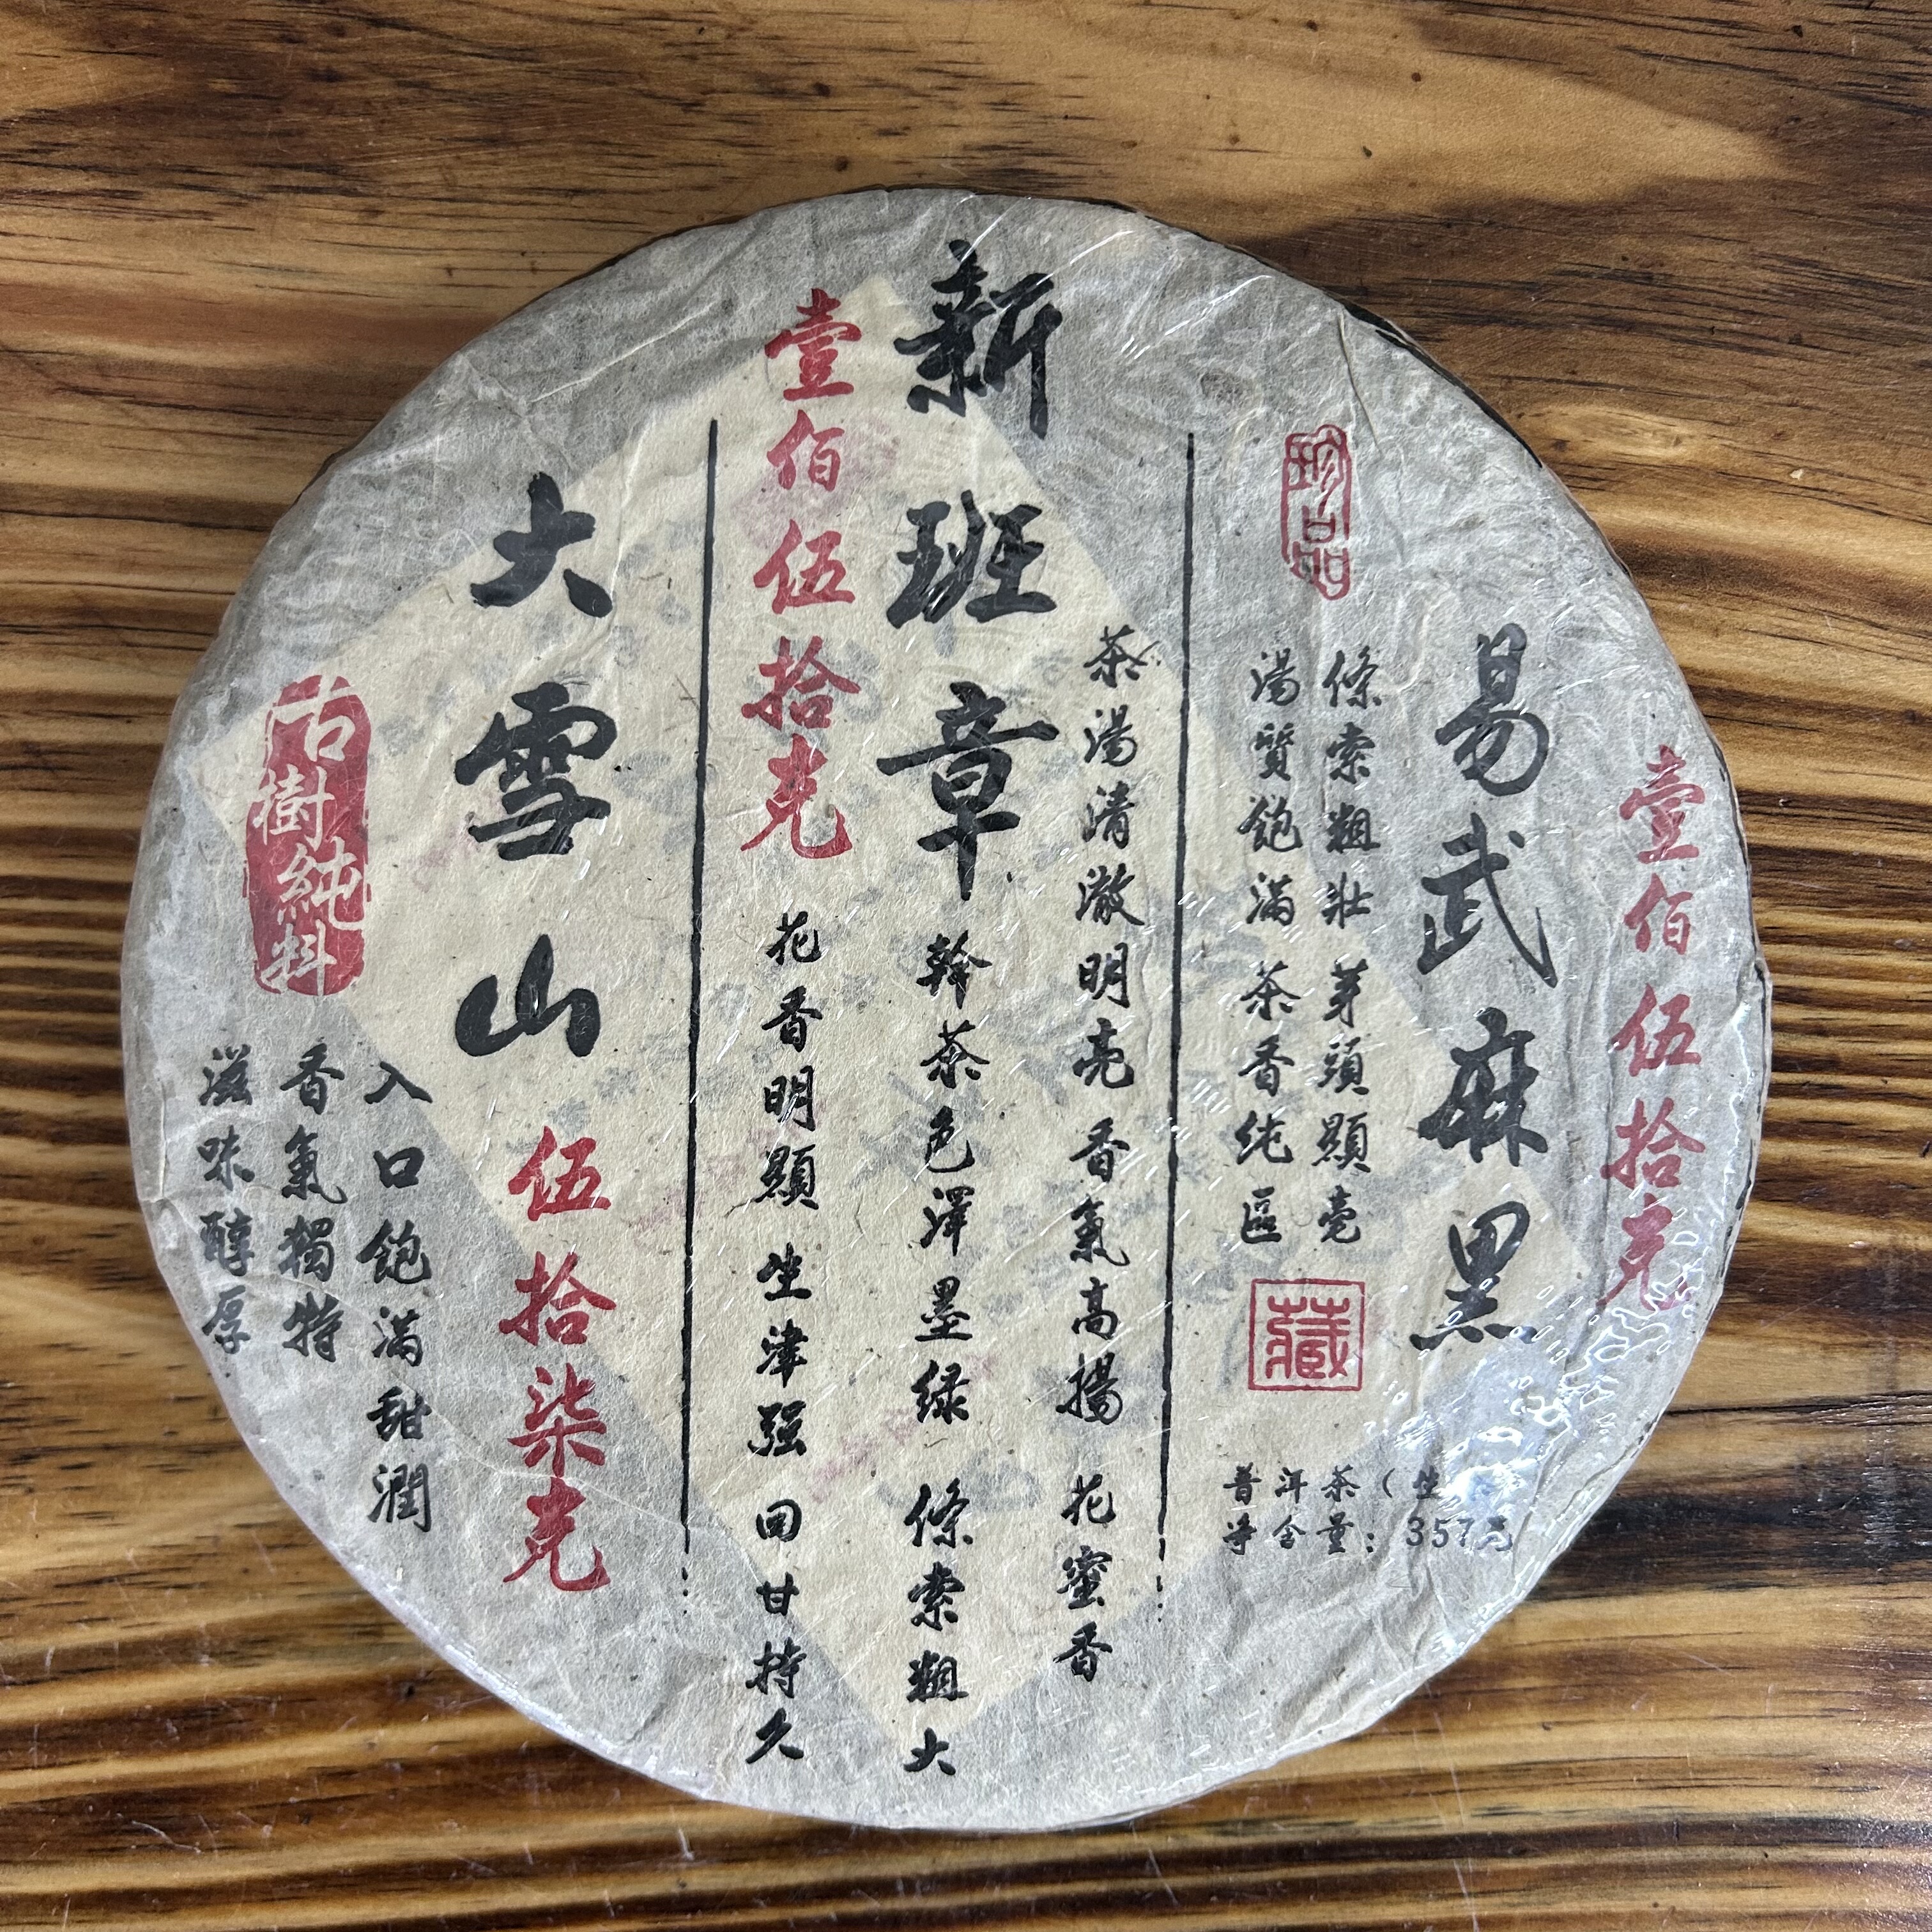 壹佰伍拾克
易武麻黑
條索粗壯 芽頭顯毫
湯質飽滿 茶香纯區
珍品
藏
普洱茶（生
净含量：357克
茶湯清澈明亮 香氣高揚 花蜜香
新班章
幹茶色澤墨绿 條索粗大
壹佰伍拾克
花香明顯 生津强 回甘持久
大雪山
伍拾柒克
入口飽滿甜潤
香氣獨特
滋味醇厚
古樹純料